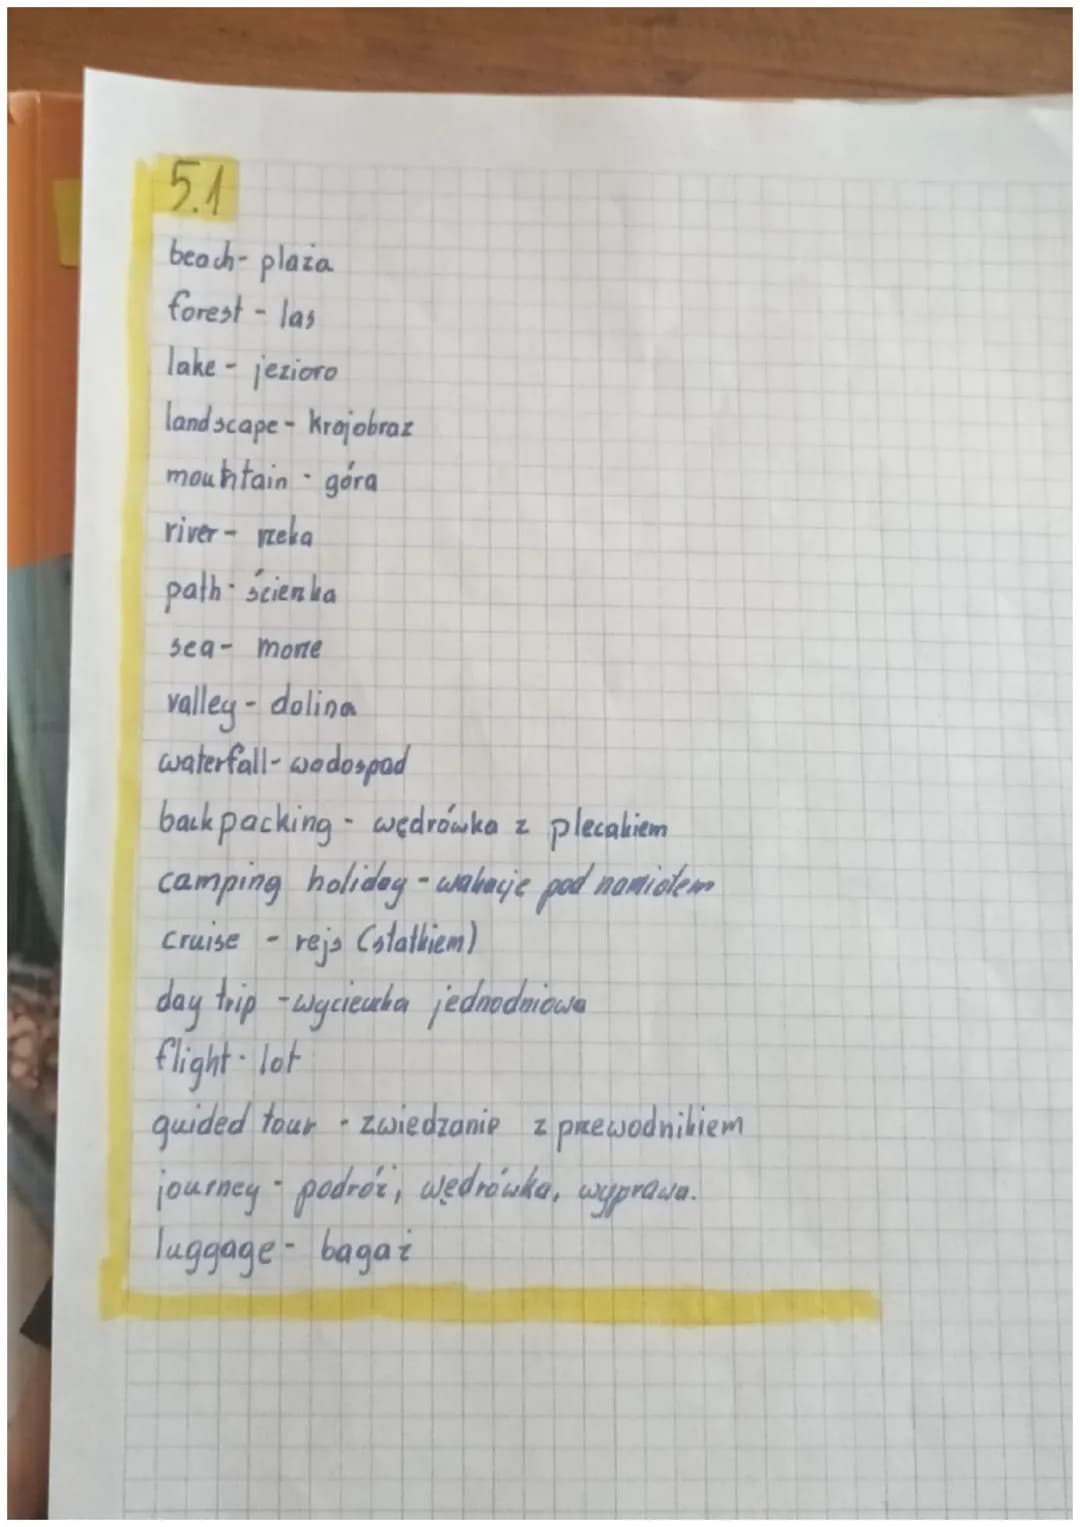 5.1
beach - plaża
forest - las
lake - jezioro
landscape - krajobraz
mountain - góra
river - rzeka
path - ścieżka
sea - morze
valley - dolina
waterfall - wodospad
backpacking - wędrówka z plecakiem
camping holiday - wakacje pod namiotem
cruise - rejs (statkiem)
day trip - wycieczka jednodniowa
flight - lot
guided tour - zwiedzanie z przewodnikiem
journey - podróż, wędrówka, wyprawa.
luggage - bagaż